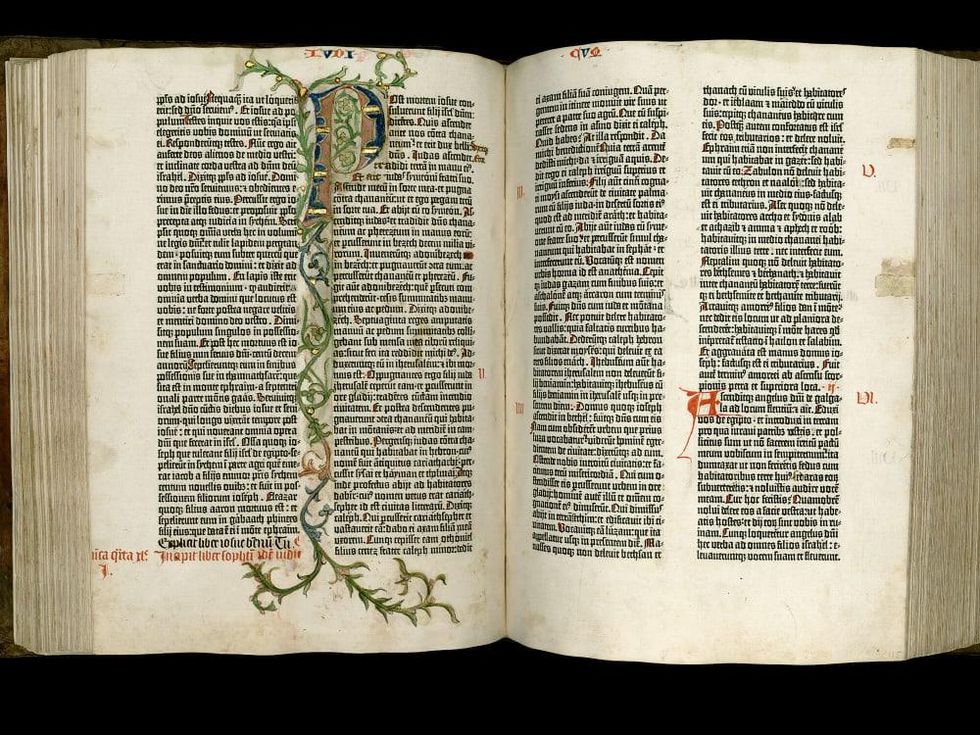 IVDI
ei: sed dño serviemus. Et iosue ad po-
pulum Testes inquit vos estis: q̃a ipsi
elegeritis vobis dominū ut serviatis
ei. Responderūtq; testes. Nūc ergo ait
auferte deos alienos de medio vestri:
et inclinate corda vestra ad dñm deū
israhel. Dixitq; p̃ps ad iosue. Domi-
no deo nr̃o serviemus: ⁊ obedientes e-
rimus p̃ceptis eius. Percussit ergo io-
sue in die illo fedus: et proposuit pp̃lo
precepta atq; iudicia in sychem. Scri-
psit quoq; omīa verba hec in volumi-
ne legis
dem: posuitq; eam subter quercū que
erat in sanctuario domini: et dixit ad
omnem populum. En lapis iste erit
vobis in testimonium
omnia verba domini que locutus est
vobis: ne forte postea negare velitis:
et mentiri domino deo vestro. Dimi-
sitq; populum singulos in possessio-
nem suam. Et post hec mortuus est io-
sue filius nun servus dñi: centū decem
annorū: sepelieruntq; eum in finibus
possessionis sue in thamnathsare: que
sita est in monte ephraim: a septentri-
onali parte mōtis gaas. Servivitq;
israhel dño cūctis diebus iosue et seni-
orum: qui longo vixerūt tempore post
iosue: et qui noverant omnia opera
dñi que fecerat in isrl̃. Ossa quoq; io-
seph que tulerant filij isrl̃ de egipto se-
pelierūt in sychem ī parte agri quē eme-
rat iacob a filijs emmor
centum novellis ovibus: et fuit in pos-
sessionem filiorum ioseph. Eleazar
quoq; filius aaron mortuus est: et
sepelierunt eum in gabaath phinees
filij eius: que data ē ei ī mōte ephraim.
Explicit liber iosue
Incipit liber
I.
Post mortem iosue con-
suluerunt filij isrl̃ dñm
dicētes. Quis ascendet
ante nos cōtra chana-
neum: et erit dux belli?
dñs. Iudas ascendet. Ecce
tradidi terrā in manu eius.
Et ait iudas symeoni fratri suo.
Ascende mecū in sorte mea: et pugna
cōtra chananeū: ut et ego pergam tecū
in sorte tua. Et abijt cū eo symeon. As-
cenditq; iudas: et tradidit dñs chana-
neum ac pherezeum in manus eorū:
et percusserunt in bezech decem milia vi-
rorum. Inveneruntq; adonibezech
in bezech: et pugnaverūt
percusserunt chananeū et pherezeū. Fu-
git aūt adonibezech: quē persecuti com-
prehenderunt: cesis summitatib; manū
eius ac pedum. Dixitq; adonibe-
zech. Septuaginta reges amputatis
manuū ac pedum summitatibus colli-
gebant sub mensa mea ciborū reliqui-
as: sicut feci ita reddidit michi
duxeruntq; eum in iherusalem: et ibi mor-
tuus est. Oppugnantes ergo filij iuda
iherusalē ceperūt eam: et percusserunt in
ore gladij: tradētes cūctam incendio
civitatem. Et postea descendentes pu-
gnaverunt contra chananeū qui habita-
bat in mōtanis: et ad meridiē in cam-
pestribus. Pergensq; iudas cōtra cha-
naneū qui habitabat in hebron cuius
nomē fuit antiquitus cariatharbe: per-
cussit sysai et hayman et tholmai. Atq;
inde profectus abijt ad habitatores
dabir: cuius nomen vetus erat cariath-
sepher id est civitas litterarū. Dixitq;
caleph. Qui percusserit cariathsepher et
vastaverit eā: dabo ei axam filiā meā
uxorem. Cunq; cepisset eam othoniel
filius cenez frater caleph minor: dedit
II.
ei axam filiā suā coniugem. Quā per-
gentem in itinere monuit vir suus ut
peteret a patre suo agrū. Que cū suspi-
rasset sedens in asino dixit ei caleph.
Quid habes? At illa respondit. Da
michi benedictionē: quia terrā arentē
dedisti michi: da et irriguam aquis. De-
dit ergo ei caleph irriguū superius et
irriguū inferius. Filij aūt cinei cogna-
ti moysi ascenderūt de civitate palma-
rum cū filijs iuda in desertū sortis eius
quod est ad meridiē arath: et habita-
verunt cū eo. Abijt aūt iudas cū syme-
one fratre suo: et percusserūt simul cha-
naneum qui habitabat in sephat: et in-
terfecerunt eū. Vocatūq; est nomen
urbis horma id est anathema. Cepitq;
iudas gazam cum finibus suis: et
aschalonē atq; accaron cum terminis
suis. Fuitq; dñs cum iuda: et mōtana
possedit. Nec potuit delere habitato-
res vallis: quia falcatis curribus ha-
bundabāt. Dederūtq; caleph hebron
sicut dixerat moyses: qui delevit ex ea
tres filios enach. Iebuseum aūt ha-
bitatorem iherusalem non deleverūt fi-
lij beniamin: habitavitq; iebuseus cū
filijs beniamin in iherusalē usq; in pre-
sentem diem. Domus quoq; ioseph
ascendit in bethel: fuitq; dñs cum eis.
Nam cum obsiderēt urbem que prius
luza vocabatur: viderūt hominē egre-
dientem de civitate: dixerūtq; ad eum.
Ostende nobis introitū civitatis: et fa-
ciemus tecū misericordiā. Qui cum o-
stendisset eis percusserunt urbem in ore
gladij: hominē autē illū et omnem co-
gnationē eius dimiserūt. Qui dimissus
abijt in terrā setthim: et edificavit ibi ci-
vitatem: vocavitq; eā luzam: que ita
appellatur usq; in presentem diē. Ma-
nasses quoq; non delevit bethsan et
thanach cū viculis suis: et habitatores
dor et ieblaam et mageddo cū viculis
suis: cepitq; chananeus habitare cum
eis. Postq̃ autem confortatus est isrl̃
fecit eos tributarios: et delere noluit.
Ephraim etiā non interfecit chananeū
qui habitabat in gazer: sed habi-
tavit cū eo. Zabulon nō delevit habi-
tatores cethron et naalon: sed habita-
vit chananeus in medio eius: factusq;
est ei tributarius. Aser quoq; nō dele-
vit habitatores accho et sydonis alab
et achazib ⁊ alma ⁊ aphech et roob:
habitavitq; in medio chananei habi-
tatoris illius terre: nec interfecit eum.
Neptalim quoq; nō delevit habitato-
res bethsemes ⁊ bethanach: ⁊ habitavit
inter chananeū habitatorē terre: fuerūt-
q; ei bethsemite et bethanite tributarij.
Artavitq; amorreus filios dan ī mōte:
nec dedit eis locum ut ad planiora de-
scenderēt: habitavitq; ī mōte hares
interpretatur testatio ī hailon et salabim.
Et aggravata est manus domus io-
seph: factusq; est ei tributarius. Fuit
aūt terminus amorrei ab ascensu scor-
pionis petra et superiora loca. II
Ascenditq; angelus dñi de galga-
la ad locum flentiū: ⁊ ait. Eduxi
vos de egipto: et introduxi in terram
pro qua iuravi patribus vestris: et pol-
licitus sum ut nō facerem irritū pactū
meum vobiscum in sempiternum: ita
dumtaxat ut non feriretis fedus cum
habitatoribus terre huius: sed aras eorū
subverteretis: et noluistis audire vocē
meam. Cur hoc fecistis? Quamobrē
nolui delere eos a facie vestra: ut habe-
atis hostes: et dij eoꝝ sint vobis in ru-
inam. Cunq; loqueretur angelus dñi
hec verba ad omnes filios israhel: e-
levaverunt vocem suam et fleverunt.
V.
VI.